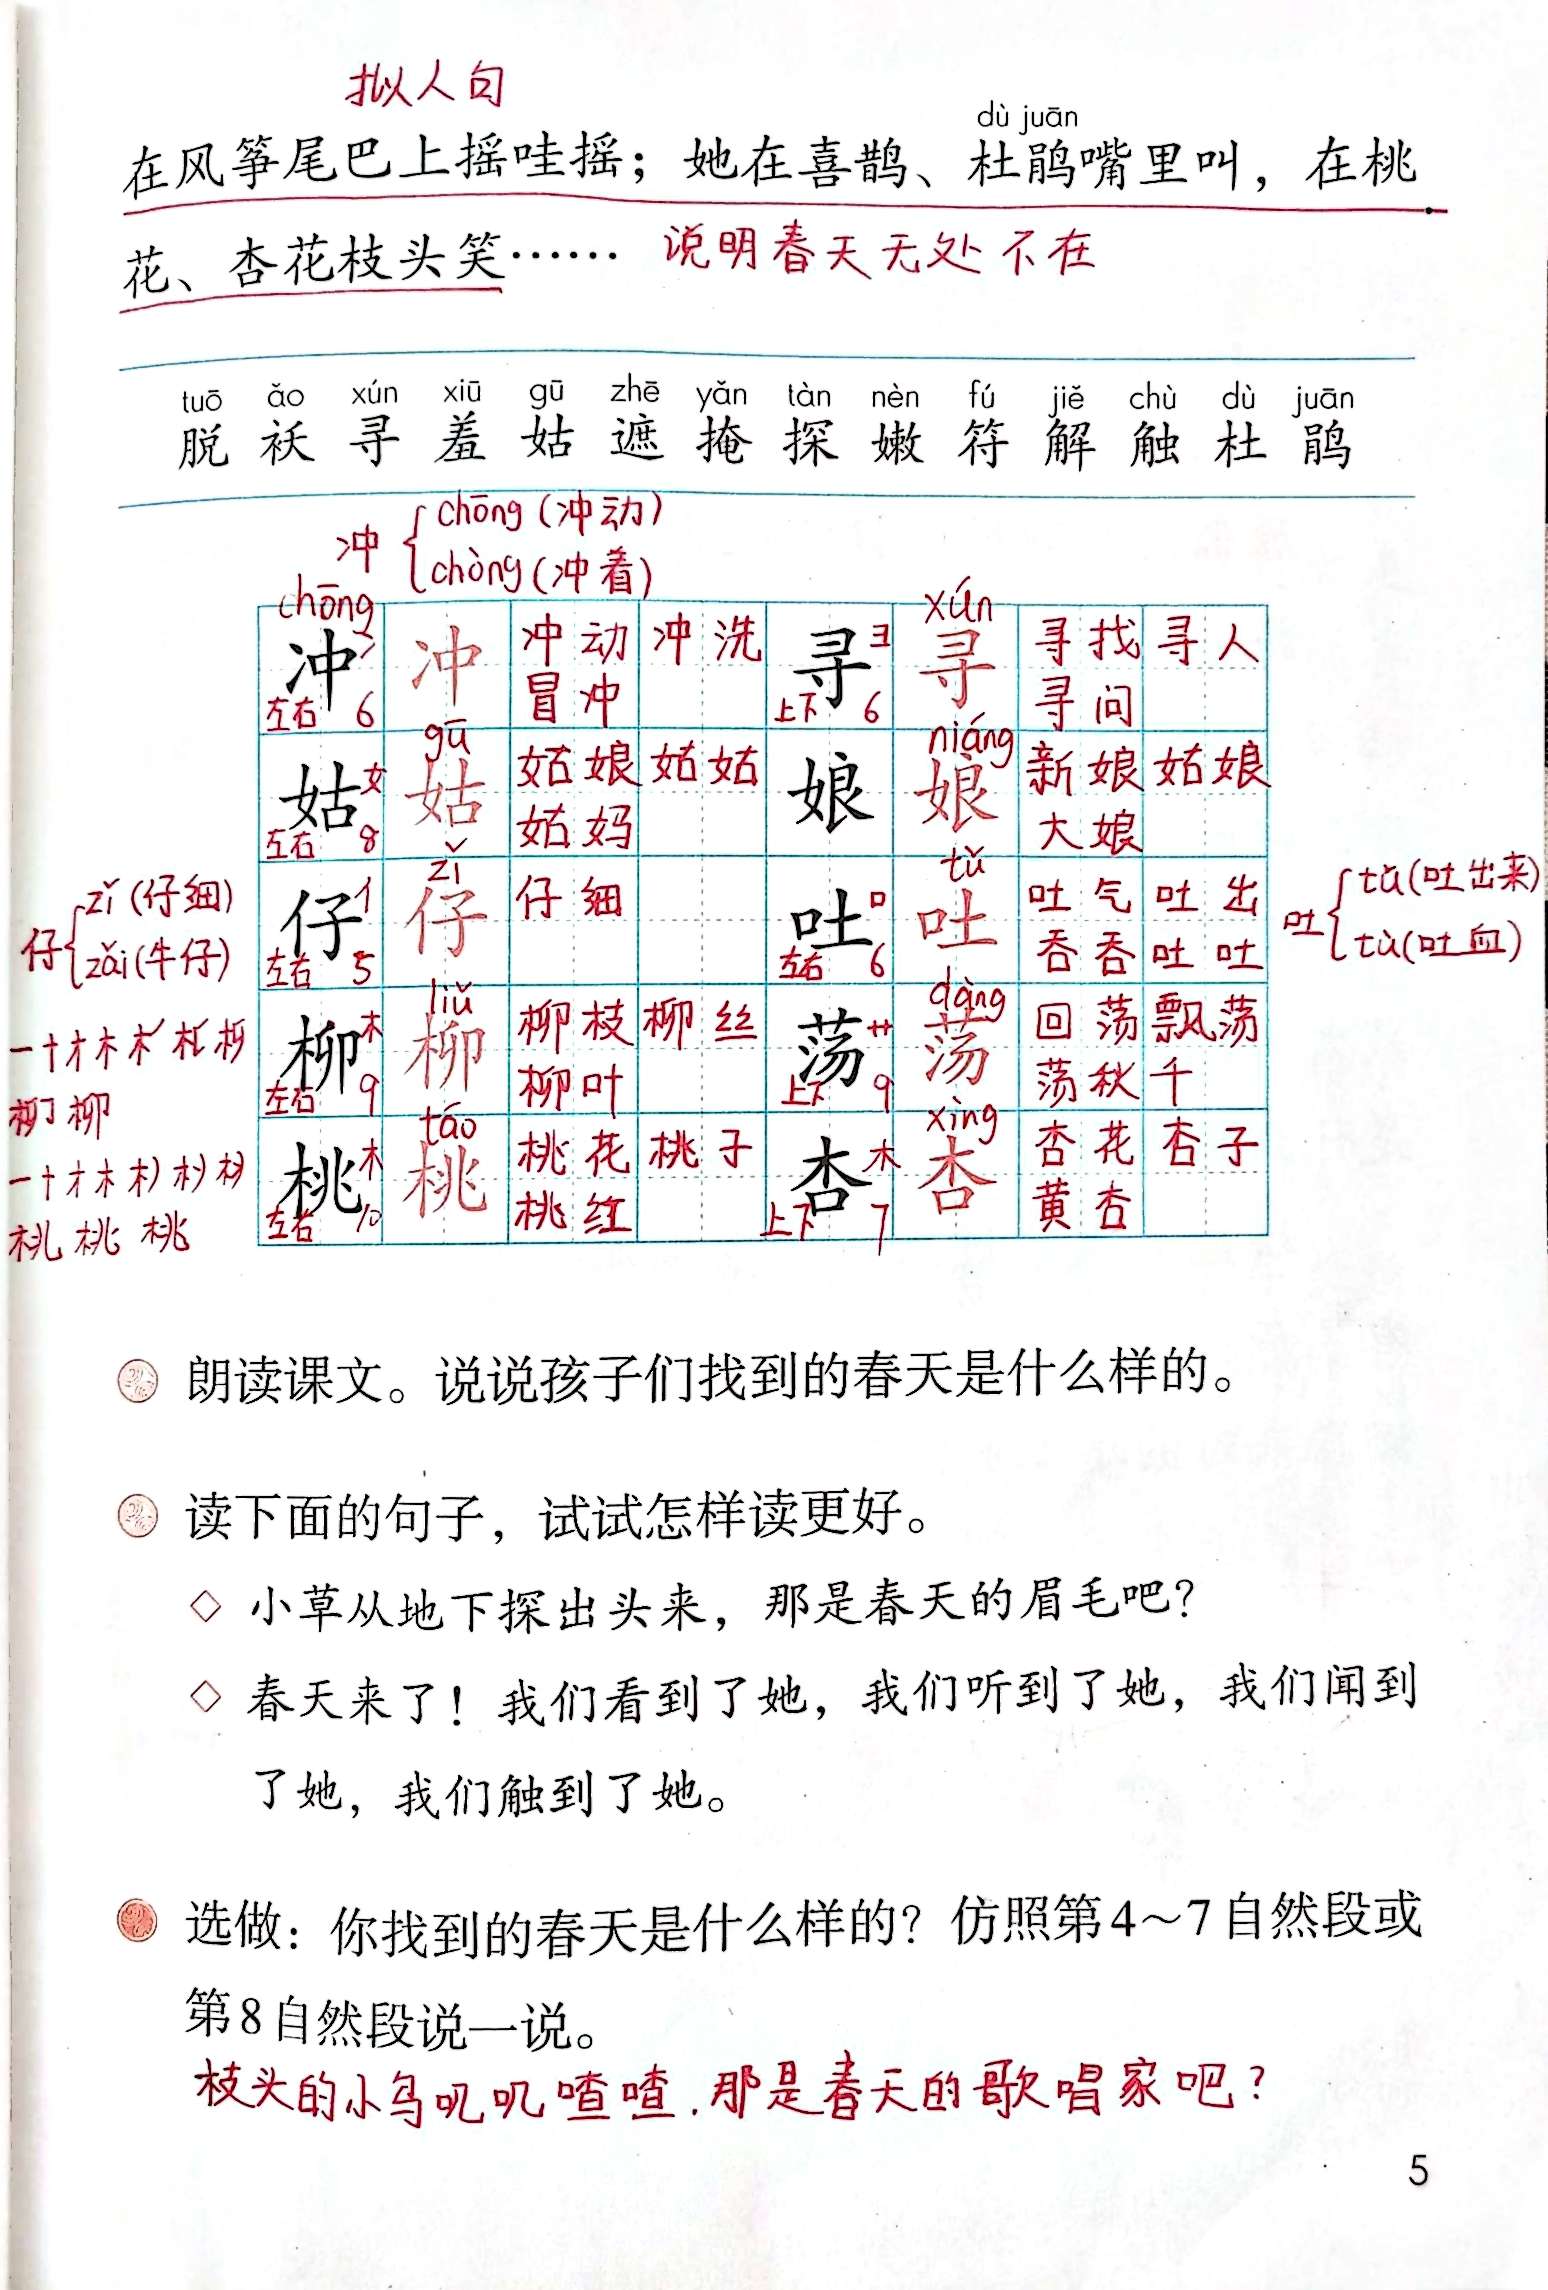 拟人句
dù juān
在风筝尾巴上摇哇摇；她在喜鹊、杜鹃嘴里叫，在桃
花、杏花枝头笑…… 说明春天无处不在
tuō ǎo xún xiū gū zhē yǎn tàn nèn fú jiě chù dù juān
脱 袄 寻 羞 姑 遮 掩 探 嫩 符 解 触 杜 鹃
冲 chōng(冲动)
chòng(冲着)
chōng xún
冲 冫 冲 冲动 冲洗 寻 彐 寻 寻找 寻人
左右 6 冒冲 上下 6 寻问
gū niáng
姑 女 姑 姑娘 姑姑 娘 娘 新娘 姑娘
左右 8 姑妈 大娘
zǐ tǔ
仔 亻 仔 仔细 吐 口 吐 吐气 吐出
左右 5 左右 6 吞吞吐吐
仔 zǐ(仔细)
zǎi(牛仔)
吐 tǔ(吐出来)
tù(吐血)
liǔ dàng
柳 木 柳 柳枝 柳丝 荡 艹 荡 回荡 飘荡
左右 9 柳叶 上下 9 荡秋千
táo xìng
桃 木 桃 桃花 桃子 杏 木 杏 杏花 杏子
左右 10 桃红 上下 7 黄杏
朗读课文。说说孩子们找到的春天是什么样的。
读下面的句子，试试怎样读更好。
◇ 小草从地下探出头来，那是春天的眉毛吧？
◇ 春天来了！我们看到了她，我们听到了她，我们闻到
了她，我们触到了她。
选做：你找到的春天是什么样的？仿照第4～7自然段或
第8自然段说一说。
枝头的小鸟叽叽喳喳.那是春天的歌唱家吧?
5